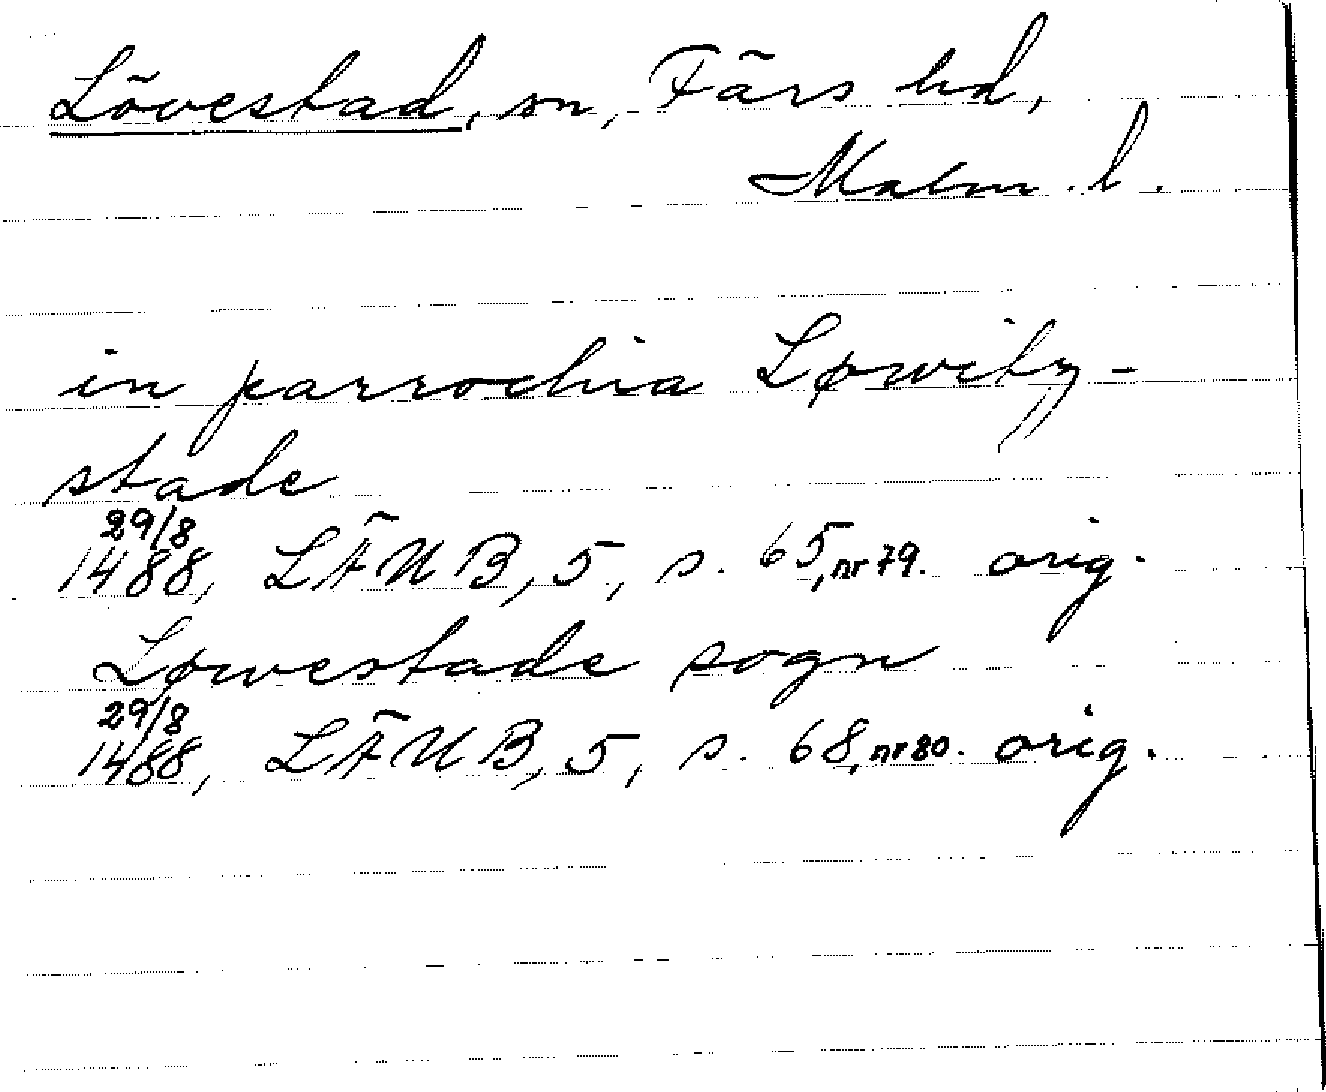 Lövestad, sn, Färs hd,
Malm. l.
in parrochia Løwitz-
stade
29/8
1488, LÄUB, 5, s. 65, nr 79. orig.
Løwestade sogn
29/8
1488, LÄUB, 5, s. 68, nr 80. orig.